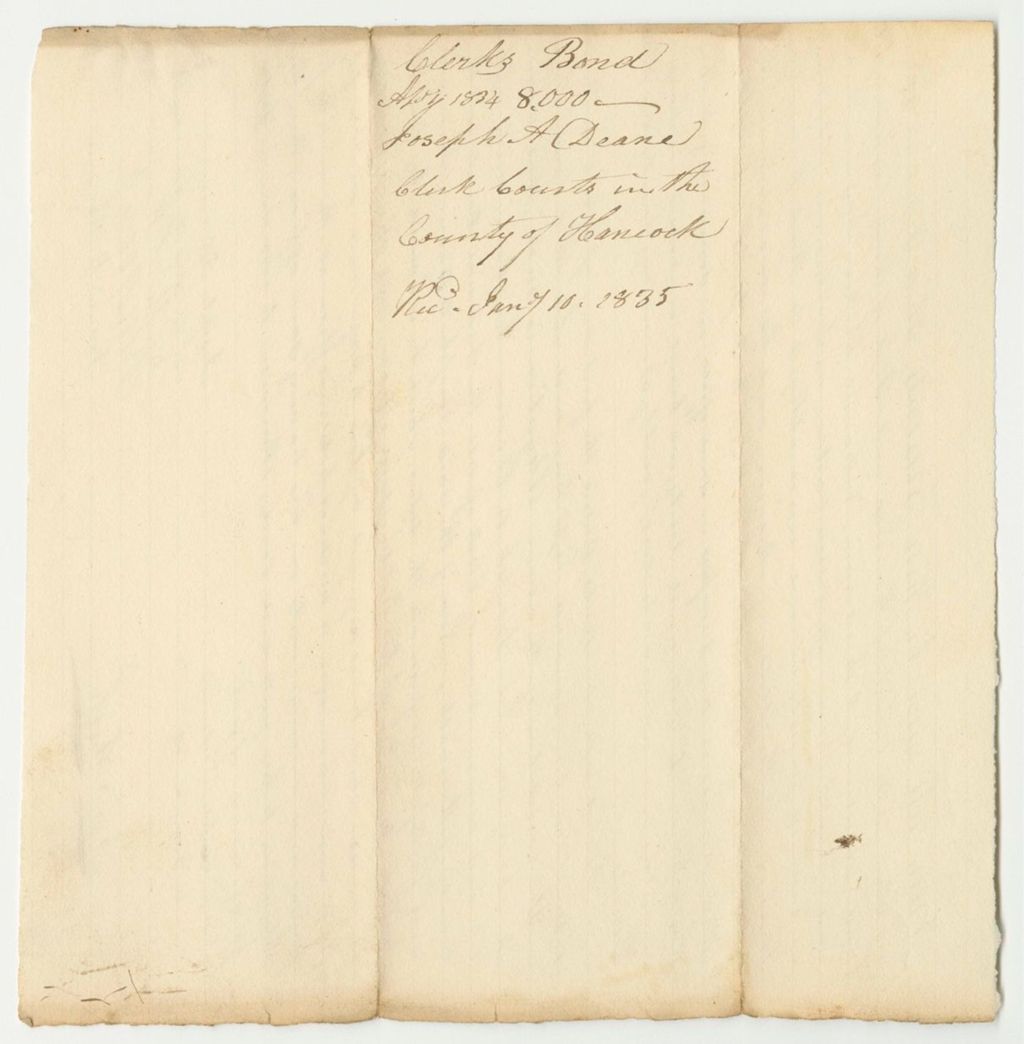 Clerks Bond
1834 8.000 —
Joseph A Deane
Clerk Courts in the
County of Hancock
Recd. Jany 10. 1835